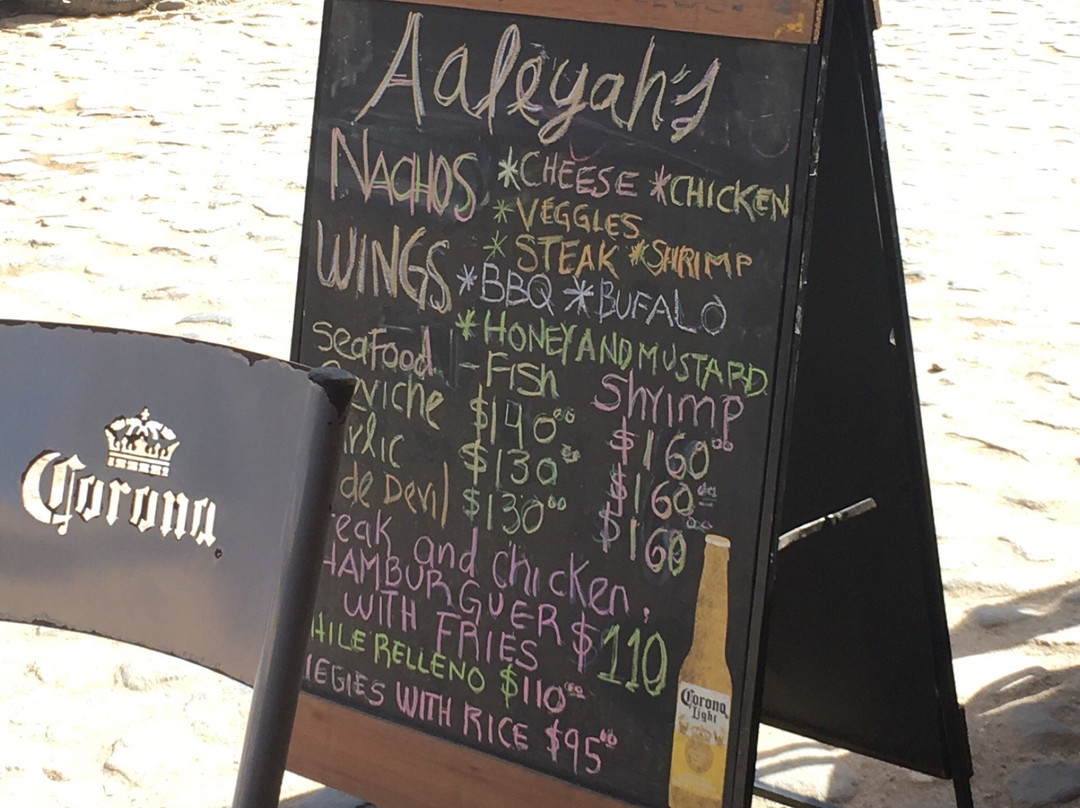 Aaleyah's
NACHOS *CHEESE *CHICKEN
*VEGGLES
WINGS *STEAK *SHRIMP
*BBQ *BUFALO
*HONEY AND MUSTARD
seaFood - Fish Shrimp
eviche $140.00 $160.00
rlic $130.00 $160.00
de Devil $130.00 $160.00
eak and Chicken,
HAMBURGUER $110
WITH FRIES
HILE RELLENO $110.00
EGIES WITH RICE $95.00
Corona
Corona
Light